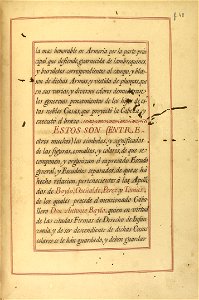 la mas honorable en Armeria por la parte princi
pal que defiende, guarnecida de lambrequines,
y burheletes correspondiente al campo, y blason
de dichas Armas, y vestida de plumas, que
en sus varios, y diversos colores demuestran los
generosos pensamientos de los hijos de es
tas nobles Casas, que proyectó la Cabeza, y
executó el brazo
ESTOS SON (ENTRE
otros muchos) los simbolos, y significados
de las figuras, esmaltes, y colores, de que se
componen, y organizan el expresado Escudo
general, y Escudetes separados, de que se há
hecho relacion, pertenecientes á los Apelli
dos de
de los quales procede el mencionado Caba
llero Don Antonio Boyle, quien en virtud
de las citadas Firmas de Derecho de Infan
zonia, y de ser descendiente de dichas Casas
solares se le han guardado, y deben guardar